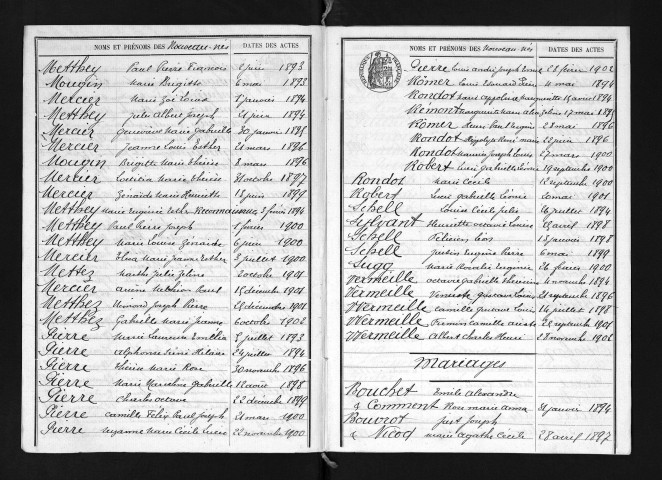 NOMS ET PRÉNOMS DES Nouveau-nés DATES DES ACTES
Metthey Paul Pierre François 2 juin 1893
Mougin Marie Brigitte 6 mai 1893
Mercier Marie Zoé Louise 1 janvier 1894
Metthey Jules Albert Joseph 1894
Mercier Geneviève Marie Gabrielle 30 janvier 1895
Mercier Jeanne Louise Esther 21 mars 1896
Mougin Brigitte Marie Thérèse 8 mars 1896
Mercier Marie Thérèse 31 octobre 1897
Mercier Zénaïde Marie Henriette 18 juin 1899
Metthey Marie Eugénie Reconnaissance 3 février 1894
Metthey Paul Pierre Joseph 1 février 1900
Metthey Marie Louise Zénaïde 6 juin 1900
Mercier Elisa Marie Jeanne Esther 3 juillet 1900
Mettez Marthe Julie 2 octobre 1901
Mercier Paul 15 décembre 1901
Metthez Joseph Pierre 25 décembre 1901
Metthez Gabrielle Marie Jeanne 6 octobre 1902
Pierre Marie Emélie 5 juillet 1893
Pierre Alphonse René Hilaire 24 juillet 1894
Pierre Thérèse Marie Rose 30 novembre 1896
Pierre Marie Gabrielle 12 août 1898
Pierre Charles Octave 22 décembre 1899
Pierre Camille Félix Paul Joseph 21 mars 1900
Pierre Suzanne Marie Cécile 22 novembre 1900
NOMS ET PRÉNOMS DES Nouveau-nés DATES DES ACTES
Pierre Louis André Joseph 28 juin 1902
Römer Louis Edouard 11 mai 1894
Rondot Marie Marguerite 15 avril 1894
Rémont Marguerite Marie 17 mars 1895
Römer 23 mai 1896
Rondot Hippolyte René 22 juin 1896
Rondot Maurice Joseph Louis 27 mars 1900
Robert Luce Gabrielle Léonie 19 septembre 1900
Rondot Marie Cécile 12 septembre 1900
Robert Luce Gabrielle Léonie mai 1901
Schell Louise Cécile Julie 16 juillet 1894
Sylvant Henriette Octavie Louise 15 avril 1898
Schell Félicien Léon 13 janvier 1898
Schell Justin Eugène Pierre 6 mai 1899
Sugg Marie Rosalie Eugénie 26 février 1900
Vermeille Octavie Gabrielle 4 novembre 1894
Vermeille Gustave Louis 21 septembre 1896
Vermeille Camille Gustave Louis 14 juillet 1898
Vermeille Firmin Camille 28 septembre 1901
Vermeille Albert Charles Henri 28 novembre 1906
Mariages
Bouchet Emile Alexandre
& Comment Rose Marie Anna 31 janvier 1894
Bouvrot Just Joseph
& Nicod Marie Agathe Cécile 28 avril 1897